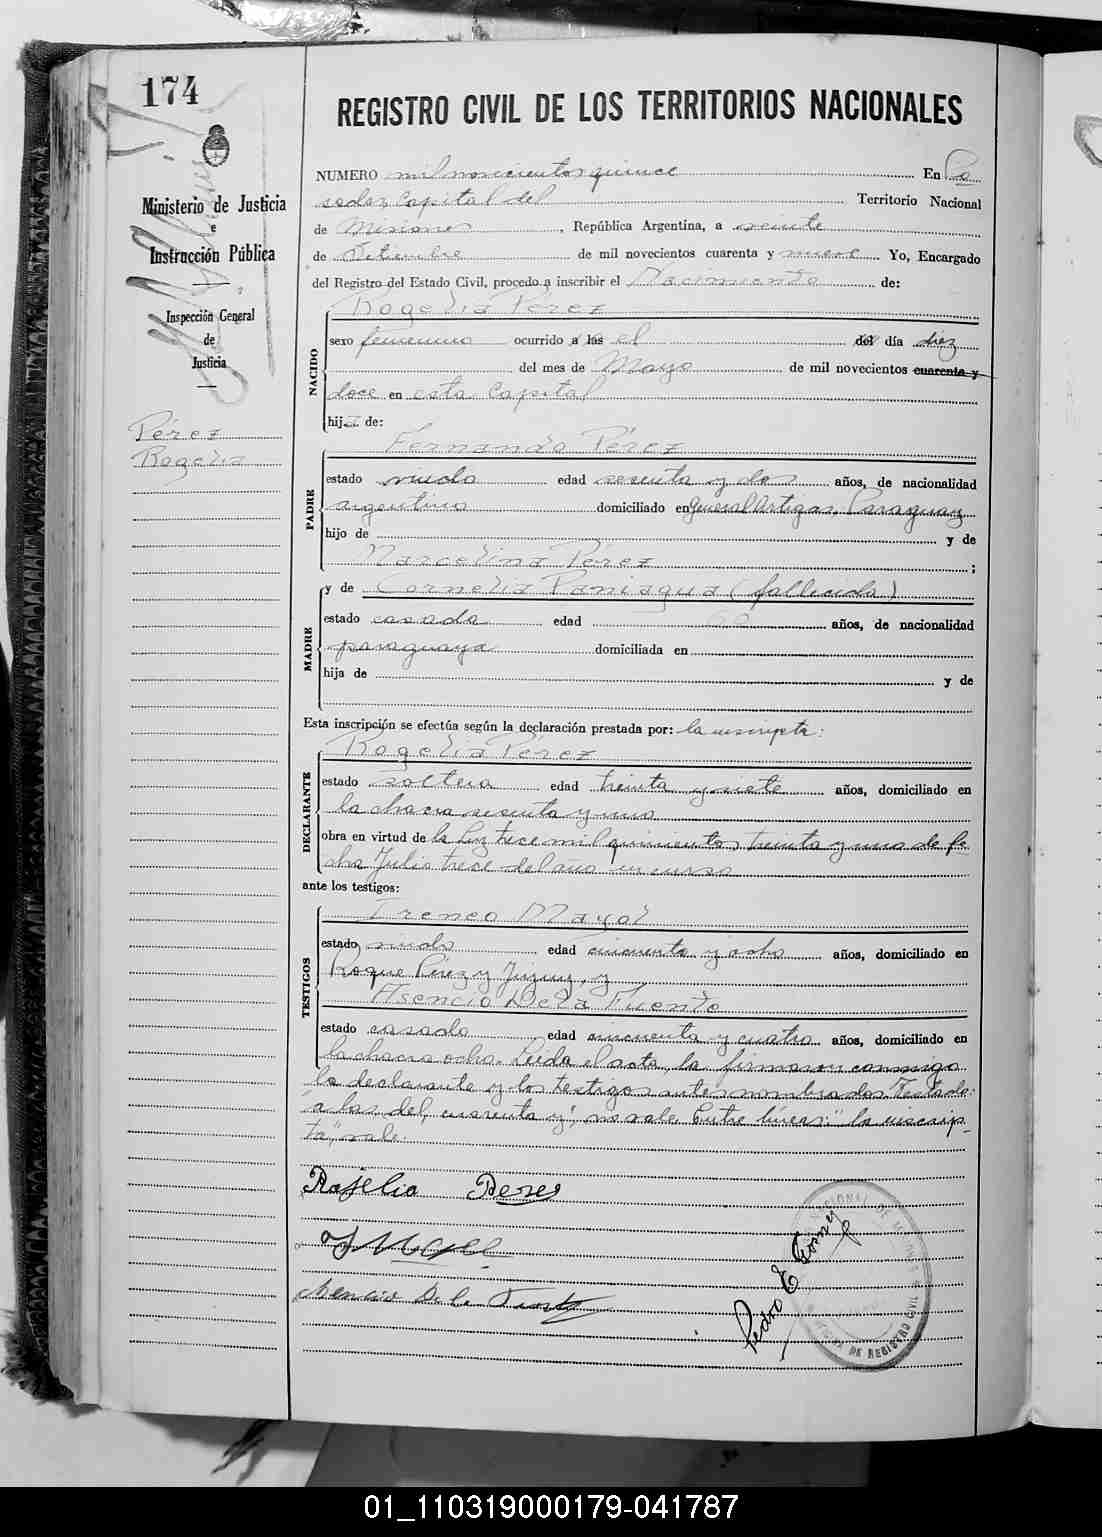 174
REGISTRO CIVIL DE LOS TERRITORIOS NACIONALES
Ministerio de Justicia
e
Instrucción Pública
Inspección General
de
Justicia
Pérez
Rogelia
NUMERO mil novecientos quince En la
sede, Capital del Territorio Nacional
de Misiones, República Argentina, a veinte
de Setiembre de mil novecientos cuarenta y nueve Yo, Encargado
del Registro del Estado Civil, procedo a inscribir el Nacimiento de:
NACIDO
Rogelia Pérez
sexo femenino ocurrido a las el del día diez
del mes de Mayo de mil novecientos cuarenta y
doce en esta Capital
hija de:
PADRE
Fernando Pérez
estado viudo edad sesenta y dos años, de nacionalidad
argentino domiciliado en General Artigas, Paraguay
hijo de y de
Marcelina Pérez;
MADRE
y de Cornelia Paniagua (fallecida)
estado casada edad años, de nacionalidad
paraguaya domiciliada en
hija de y de
Esta inscripción se efectúa según la declaración prestada por: la inscripta:
DECLARANTE
Rogelia Pérez
estado soltera edad treinta y siete años, domiciliado en
la chacra sesenta y uno
obra en virtud de la Ley trece mil quinientos treinta y uno de fe-
cha Julio trece del año en curso
ante los testigos:
TESTIGOS
Ireneo Mayol
estado viudo edad cincuenta y ocho años, domiciliado en
Roque Pérez y Jujuy, y
Asencio De la Fuente
estado casado edad cincuenta y cuatro años, domiciliado en
la chacra ocho. Leída el acta, la firmaron conmigo
la declarante y los testigos antes nombrados. Testado:
"a las, del, cuarenta y", no vale. Entre líneas: "la inscrip-
ta", vale.
Rojelia Peres
Asencio De la Fuente
Pedro E
OFICINA DE REGISTRO CIVIL
01_110319000179-041787